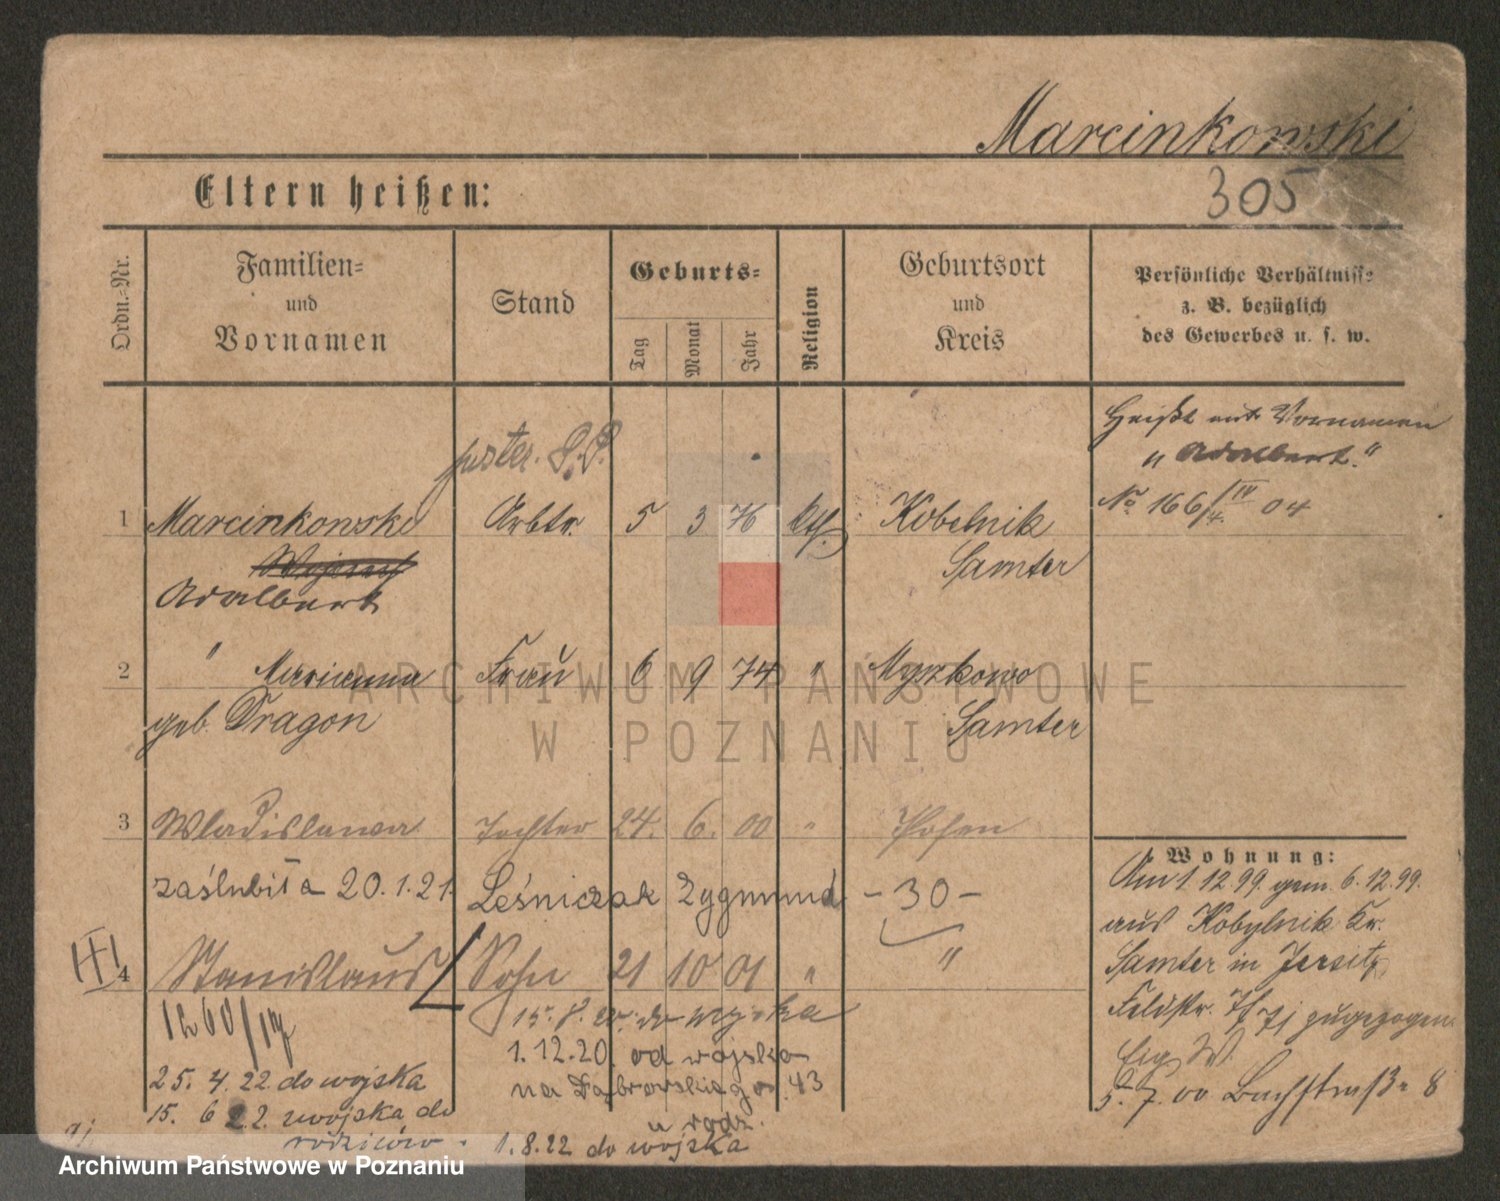 Marcinkowski
305
Eltern heißen:
Ordn.-Nr.
Familien-
und
Vornamen
Stand
Geburts-
Tag
Monat
Jahr
Religion
Geburtsort
und
Kreis
Persönliche Verhältnisse
z. B. bezüglich
des Gewerbes u. s. w.
Heißt mit Vornamen
"Adalbert."
No 166/IV 4. 04
1 Marcinkowski Arbtr. 5 3 76 kth. Kobelnik
Samter
Adalbert
2 " Marianna Frau 6 9 74 " Myszkowo
geb. Dragon Samter
3 Wladislawa Tochter 24. 6. 00 " Posen
zaślubiła 20.1.21. Leśniczak Zygmund - 30 -
4 Stanislaus Sohn 21 10 01 " "
15. 8. do wojska
1.12.20 od wojska
na Dąbrowskiego 43
u rodz.
25. 4. 22 do wojska
15. 6 22. z wojska do
rodziców.
1.8.22 do wojska
Wohnung:
Am 1.12.99. gem. 6.12.99.
aus Kobylnik Kr.
Samter in Jersitz,
Feldstr. zugezogen
5. 7. 00 Bachstraße 8
ARCHIWUM PAŃSTWOWE
W POZNANIU
Archiwum Państwowe w Poznaniu